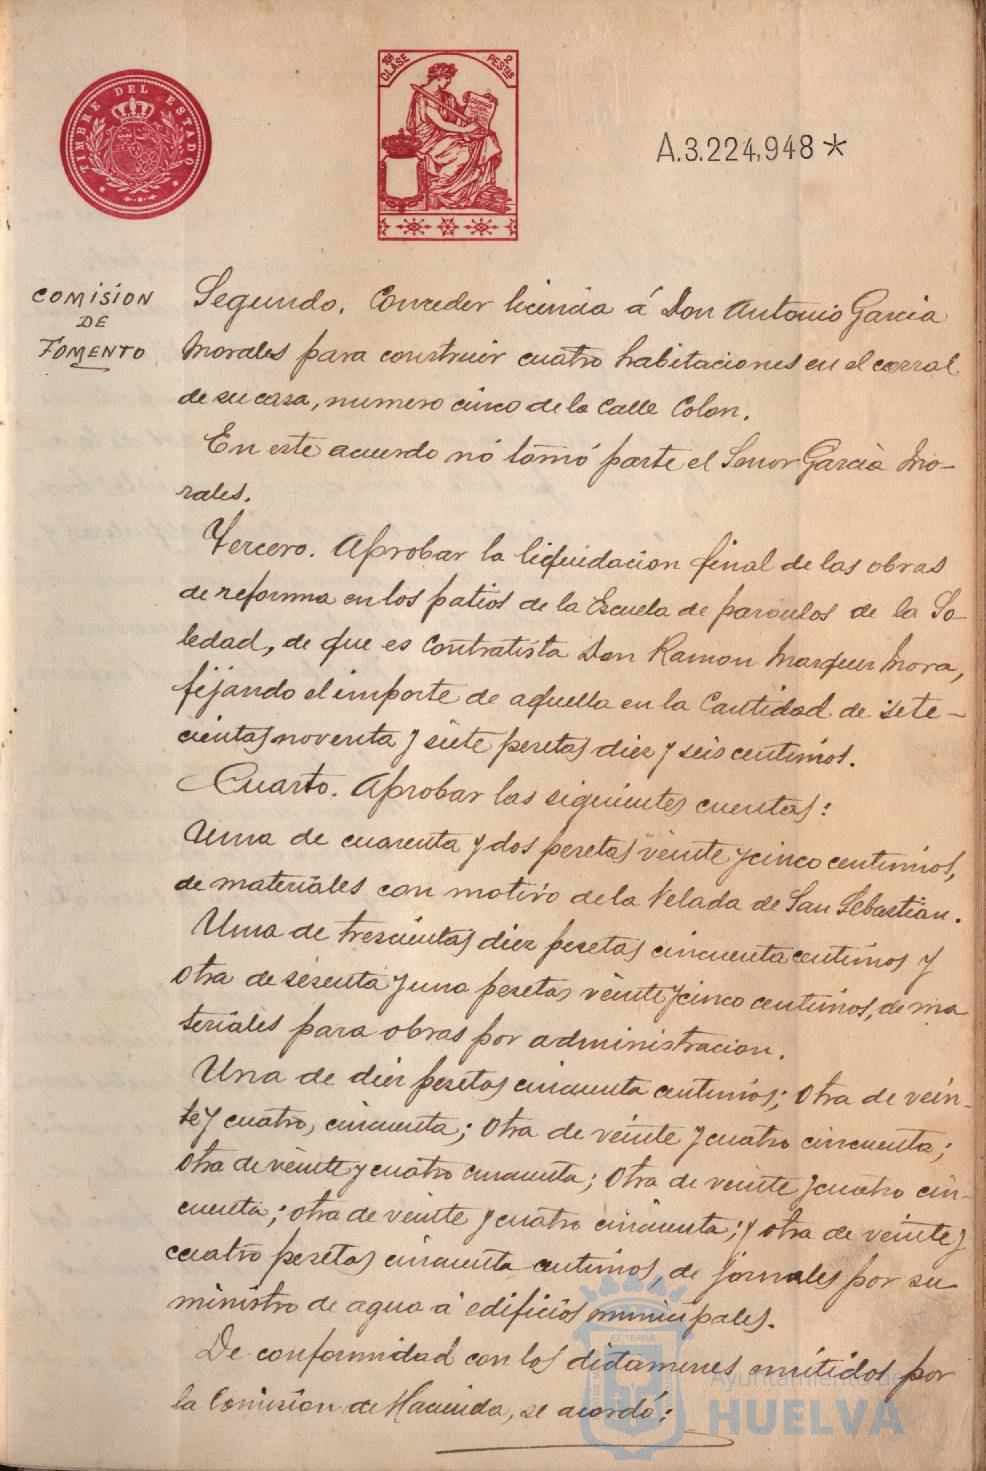 TIMBRE DEL ESTADO
10ª CLASE
2 PESTAS
A.3.224,948*
COMISION
DE
FOMENTO
Segundo. Conceder licencia á Don Antonio Garcia
Morales para construir cuatro habitaciones en el corral
de su casa, numero cinco de la Calle Colon.
En este acuerdo nó tomó parte el Señor Garcia Mo-
rales.
Tercero. Aprobar la liquidacion final de las obras
de reforma en los patios de la Escuela de parvulos de la So-
ledad, de que es Contratista Don Ramon Marquez Mora,
fijando el importe de aquella en la Cantidad de sete-
cientas noventa y siete pesetas diez y seis centimos.
Cuarto. Aprobar las siguientes cuentas:
Una de cuarenta y dos pesetas veinte y cinco centimos,
de materiales con motivo de la Velada de San Sebastian.
Una de trescientas diez pesetas cincuenta centimos y
otra de sesenta y una pesetas veinte y cinco centimos, de ma
teriales para obras por administracion.
Una de diez pesetas cincuenta centimos; Otra de vein-
te y cuatro, cincuenta; Otra de veinte y cuatro cincuenta;
Otra de veinte y cuatro cincuenta; Otra de veinte y cuatro cin-
cuenta; otra de veinte y cuatro cincuenta; y otra de veinte y
cuatro pesetas cincuenta centimos, de jornales por su
ministro de agua á edificios municipales.
De conformidad con los dictamenes emitidos por
la Comision de Hacienda, se acordó:
Ayuntamiento de
HUELVA